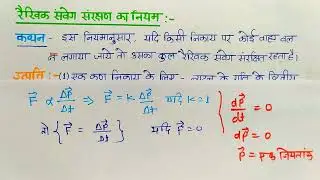 रैखिक संवेग संरक्षण का नियम :-
कथन - इस नियमानुसार, यदि किसी निकाय पर कोई वाह्य बल
न लगाया जाये तो उसका कुल रैखिक संवेग संरक्षित रहता है।
उत्पत्ति - (1) एक कण निकाय के लिए - न्यूटन के गति के द्वितीय
F⃗ ∝ Δp⃗/Δt ⇒ F⃗ = k Δp⃗/Δt यदि k=1
तो { F⃗ = Δp⃗/Δt } यदि F⃗ = 0
dp⃗/dt = 0
dp⃗ = 0
p⃗ = एक नियतांक